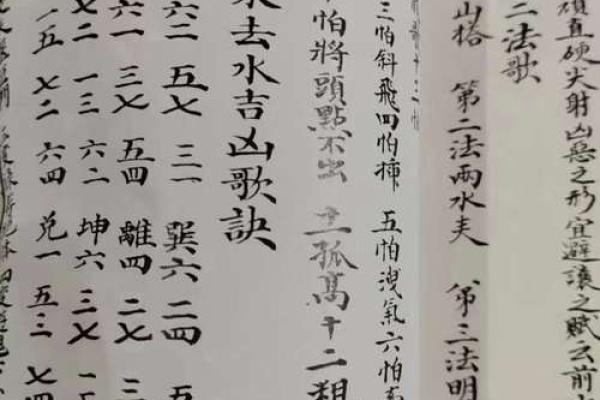 碩直硬尖射凶惡之形宜避讓之賦云前
二法歌
山搭 第二法兩水夹 第三法明
三怕斜飛四怕揷 五怕洩氣六怕
怕將頭點不出 十一孤髙十二粗
去水吉凶歌訣
六二 五七 三一 巽六 二四 五
六一 三七 五四 離四 二七 三
七二 一三 六二 坤六 三七 一
五 七二 六四 兑一 五三 七四